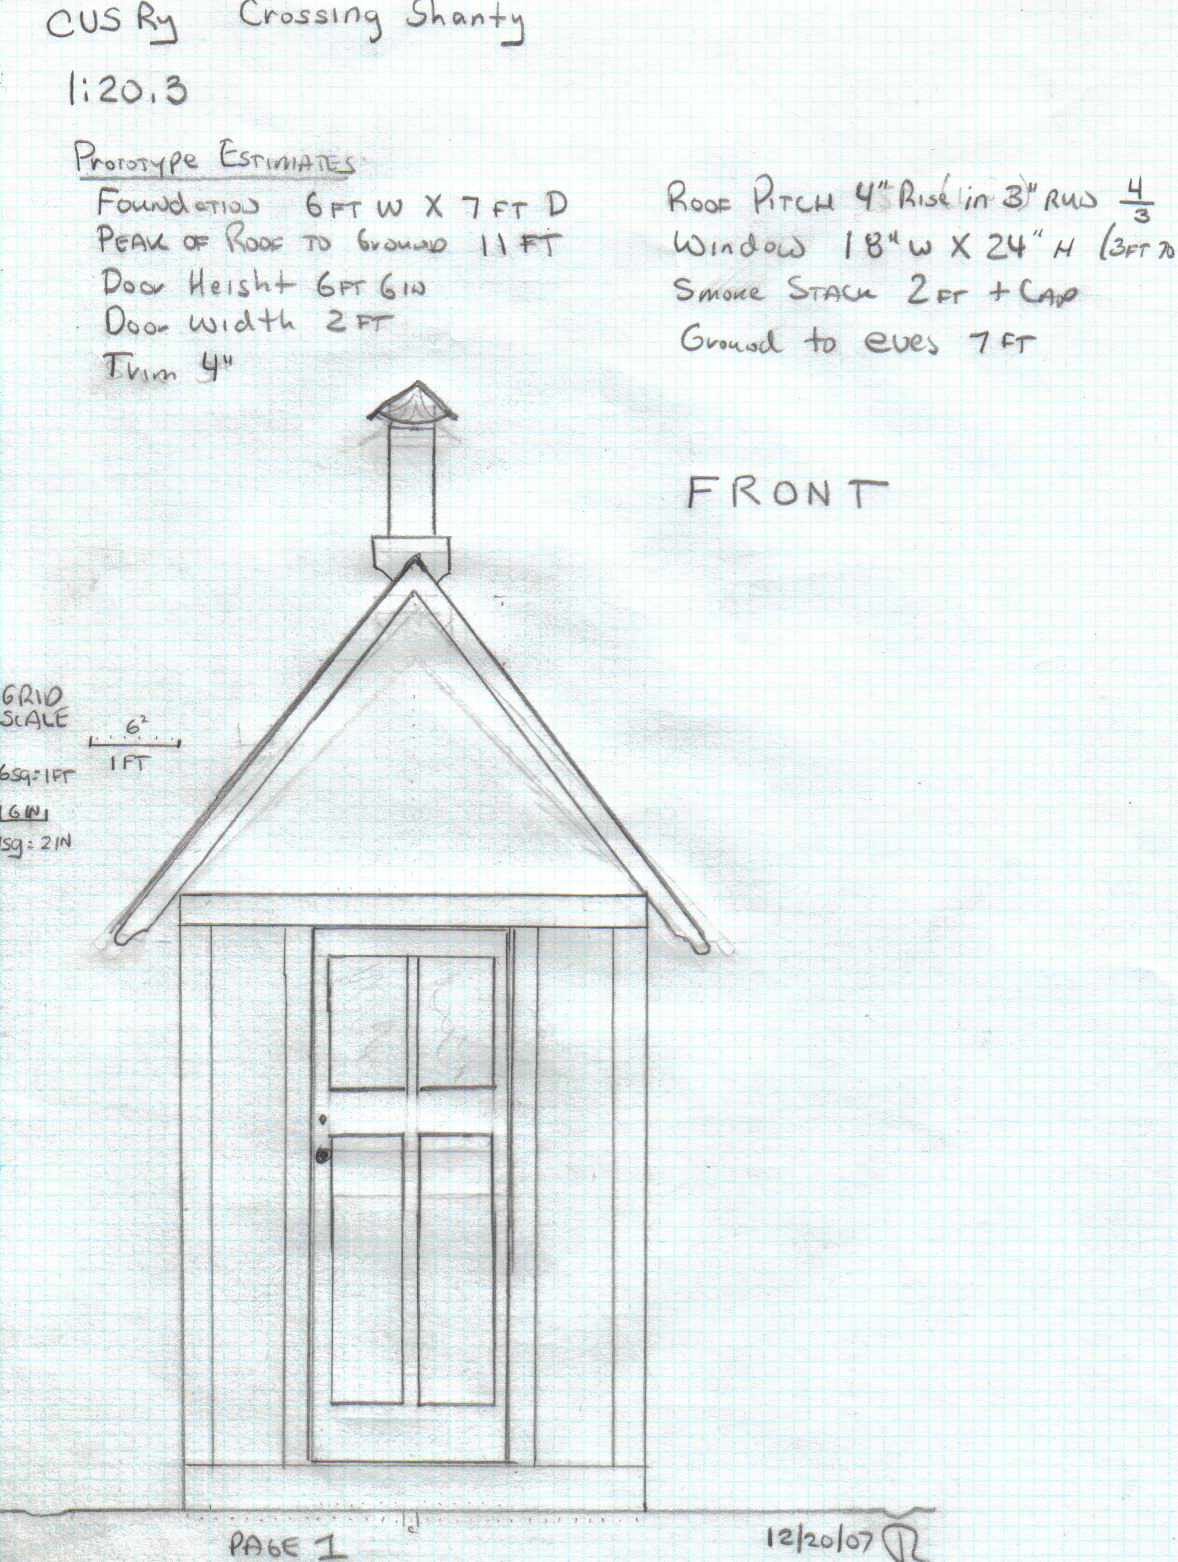 CUS Ry Crossing Shanty
1:20.3
Prototype Estimates
Foundation 6 FT W X 7 FT D
Peak of Roof to Ground 11 FT
Door Height 6 FT 6 IN
Door Width 2 FT
Trim 4"
Roof Pitch 4" Rise in 3" Run 4/3
Window 18" W X 24" H (3 FT TO
Smoke Stack 2 FT + Cap
Ground to eves 7 FT
FRONT
GRID
SCALE
6²
1 FT
6sq=1FT
6 IN
1sq=2IN
C
PAGE 1
12/20/07